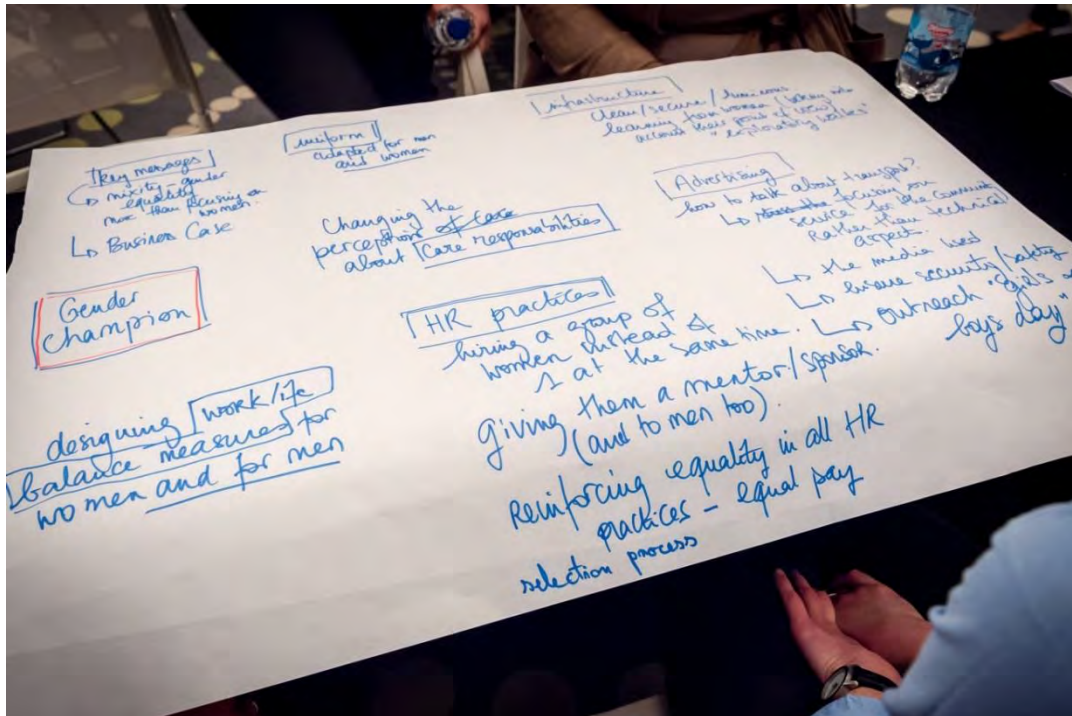 Key messages
↳ mixity - gender
equality
more than focusing on
women.
↳ Business Case
uniform
adapted for men
and women
Infrastructure
clean/secure/luminous
learning from women (taken into
account their point of view)
"exploratory walks"
Changing the
perceptions of care
about Care responsibilities
Advertising
how to talk about transport?
↳ focusing on
service for the community
Rather than technical
aspect.
↳ the media used
↳ security/safety
↳ outreach "girls
boys day"
Gender
champion
HR practices
hiring a group of
women instead of
1 at the same time.
giving them a mentor/sponsor.
(and to men too).
Reinforcing equality in all HR
practices - equal pay
selection process
designing work/life
balance measures for
women and for men